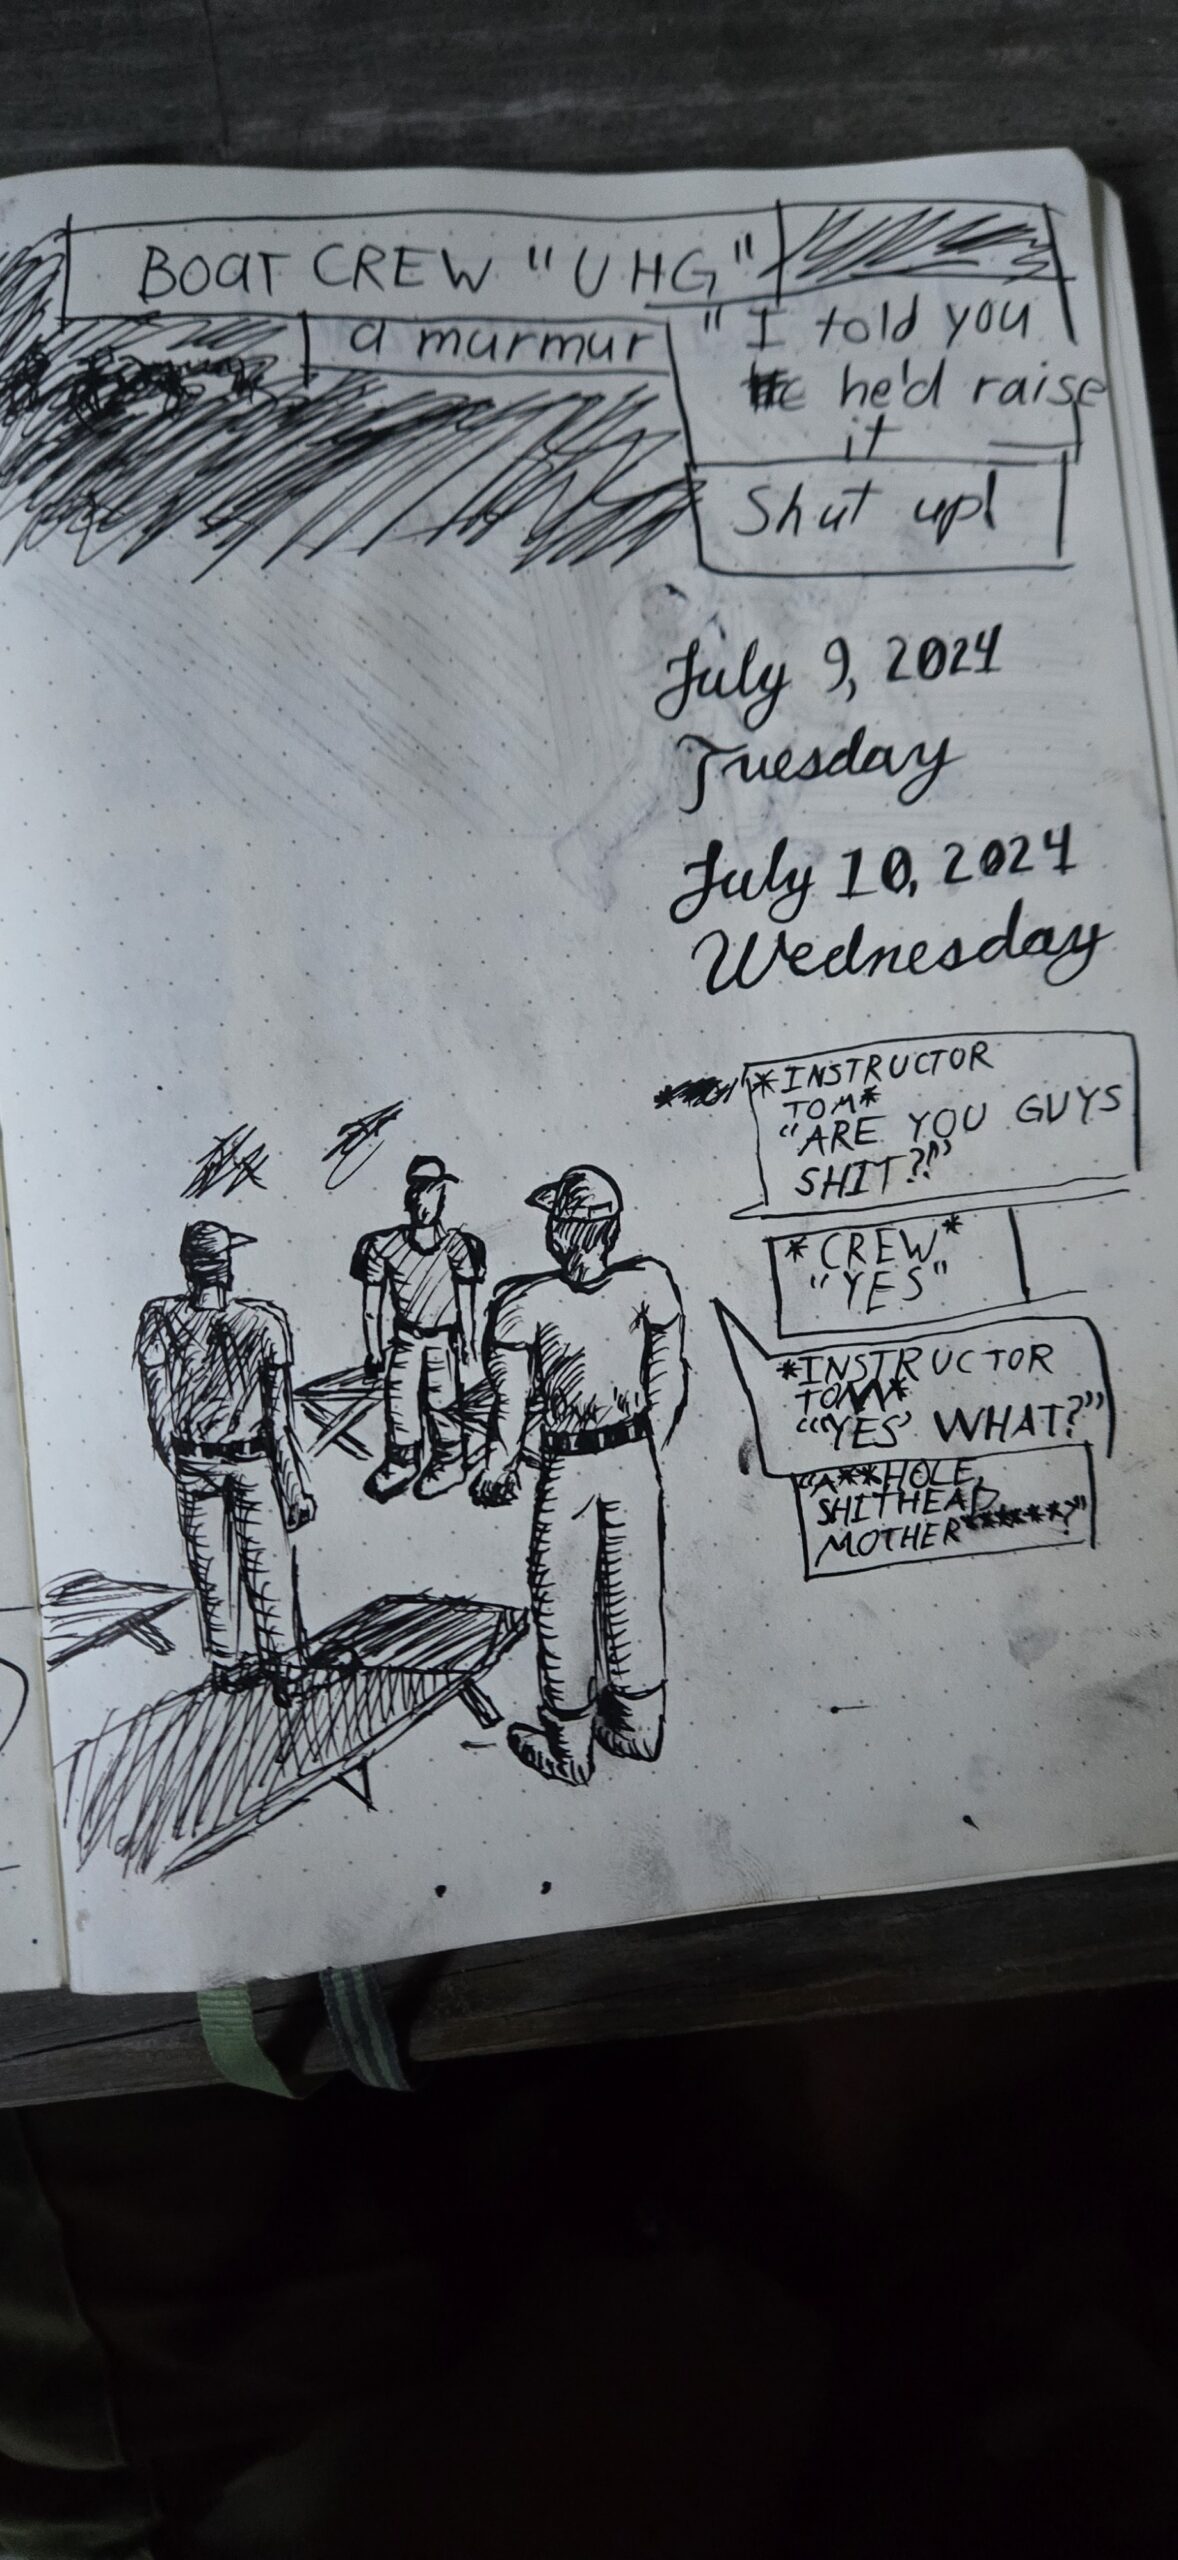 BOAT CREW "UHG"
a murmur
"I told you
he'd raise
it
Shut up!
July 9, 2024
Tuesday
July 10, 2024
Wednesday
*INSTRUCTOR
TOM*
"ARE YOU GUYS
SHIT?!"
*CREW*
"YES"
*INSTRUCTOR
TOM*
"'YES' WHAT?"
"A**HOLE,
SHITHEAD,
MOTHER******?"